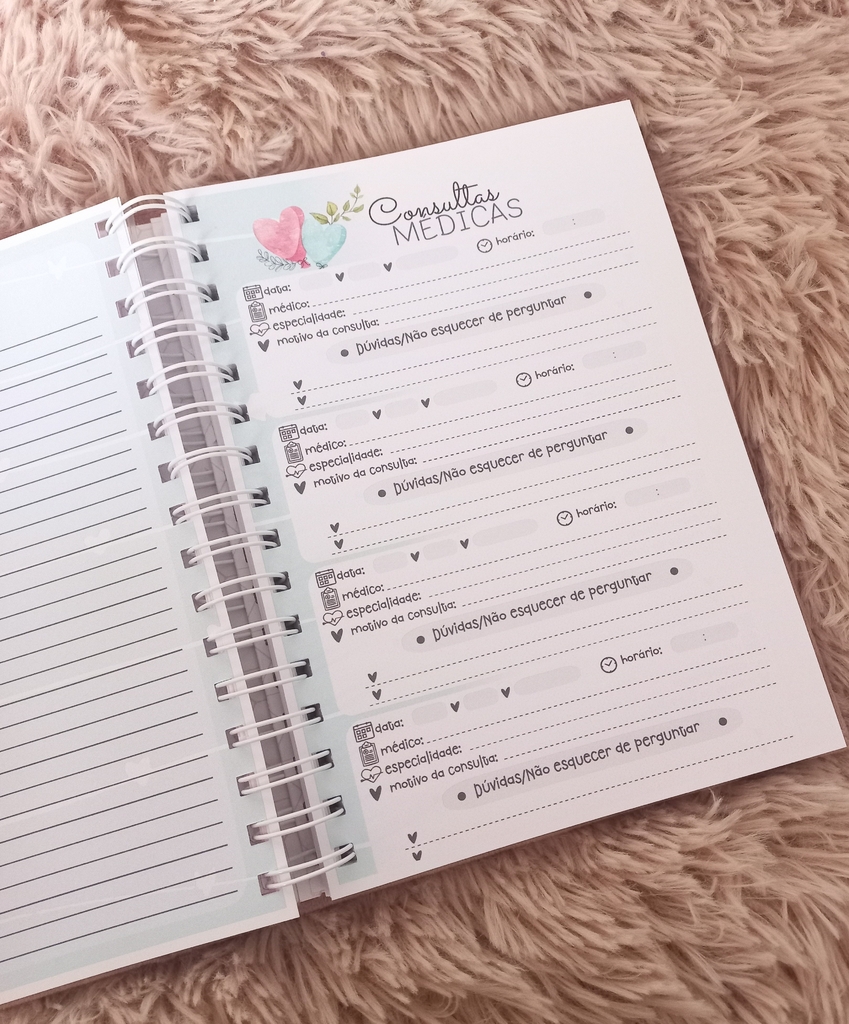 Consultas
MÉDICAS
data: horário: :
médico:
especialidade:
motivo da consulta:
• Dúvidas/Não esquecer de perguntar •
data: horário: :
médico:
especialidade:
motivo da consulta:
• Dúvidas/Não esquecer de perguntar •
data: horário: :
médico:
especialidade:
motivo da consulta:
• Dúvidas/Não esquecer de perguntar •
data: horário: :
médico:
especialidade:
motivo da consulta:
• Dúvidas/Não esquecer de perguntar •